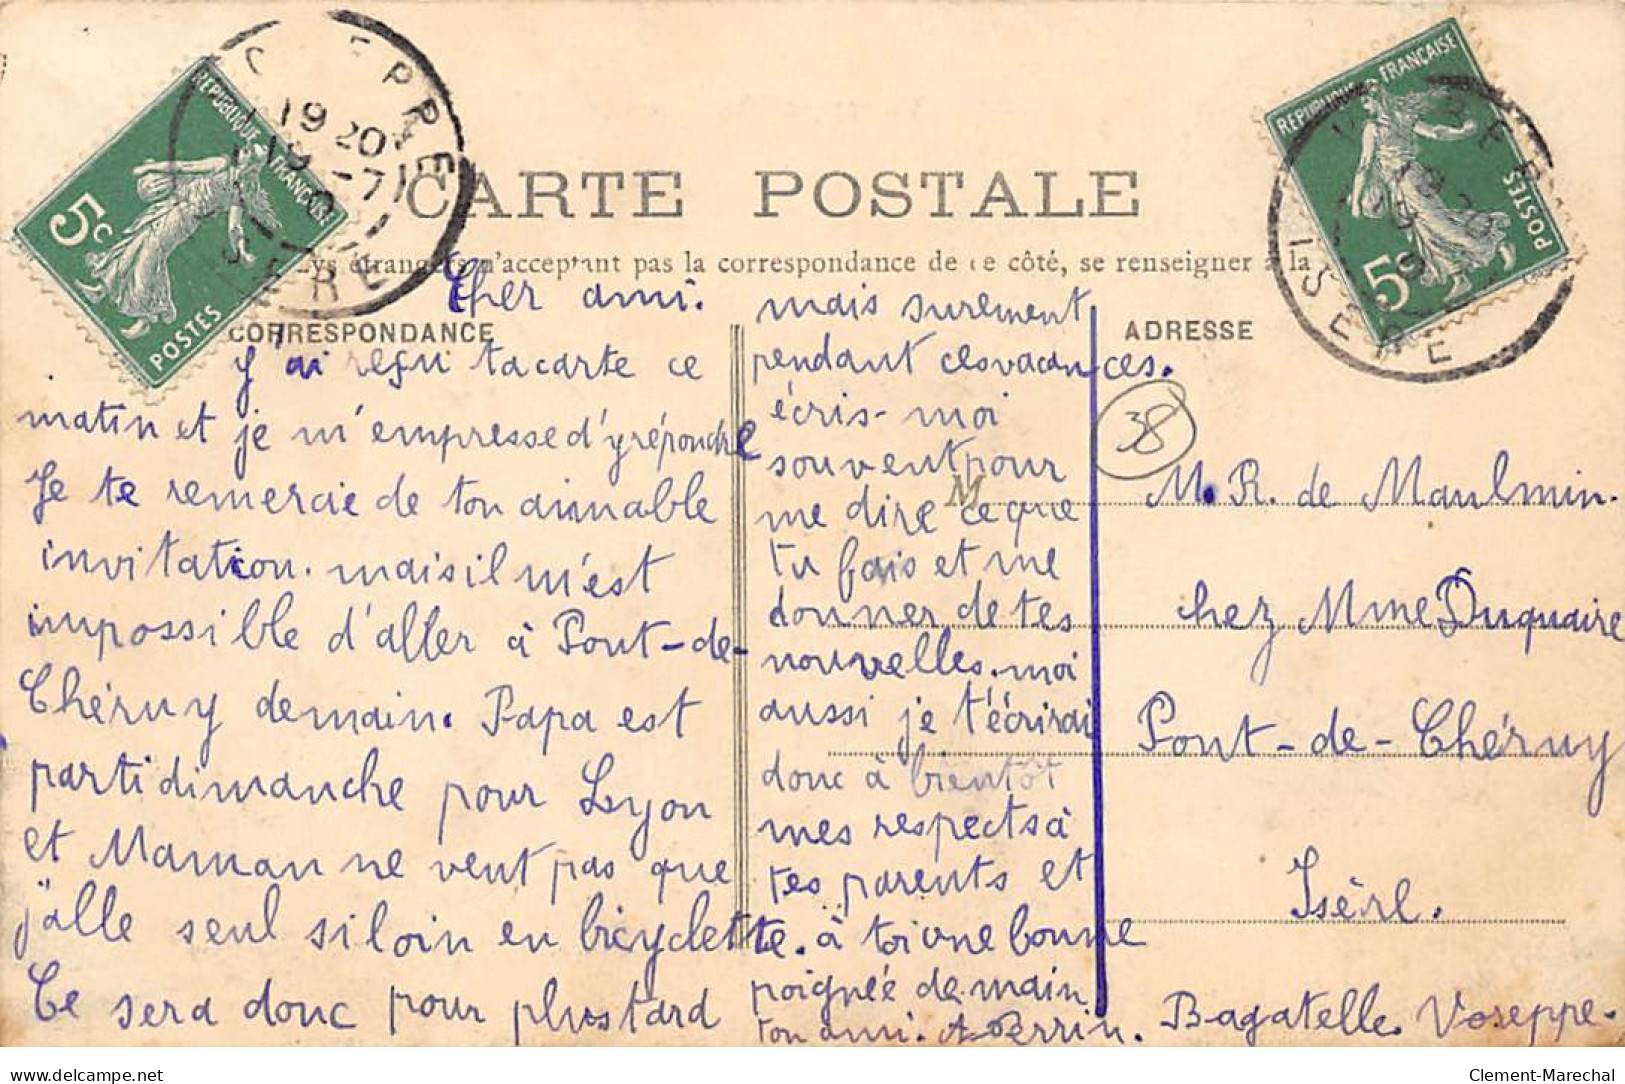 CARTE POSTALE
pas la correspondance de ce côté, se renseigner à la
CORRESPONDANCE
Cher ami.
J'ai reçu ta carte ce
matin et je m'empresse d'y répondre
Je te remercie de ton aimable
invitation. mais il m'est
impossible d'aller à Pont-de-
Chéruy demain. Papa est
parti dimanche pour Lyon
et Maman ne veut pas que
j'aille seul si loin en bicyclette.
Ce sera donc pour plus tard
mais surement
pendant ces vacances.
écris-moi
souvent pour
me dire ce que
tu fais et me
donner de tes
nouvelles. moi
aussi je t'écrirai
donc à bientôt
mes respects à
tes parents et
à toi une bonne
poignée de main
ton ami. A Perrin.
Bagatelle. Voreppe.
ADRESSE
38
M
M. R. de Maulmin.
chez Mme Duquaire
Pont-de-Chéruy
Isère.
REPUBLIQUE FRANÇAISE
5c
POSTES
PRE
19 20
19 -7
ISERE
REPUBLIQUE FRANÇAISE
5c
POSTES
ISERE
delcampe.net
Clement-Marechal